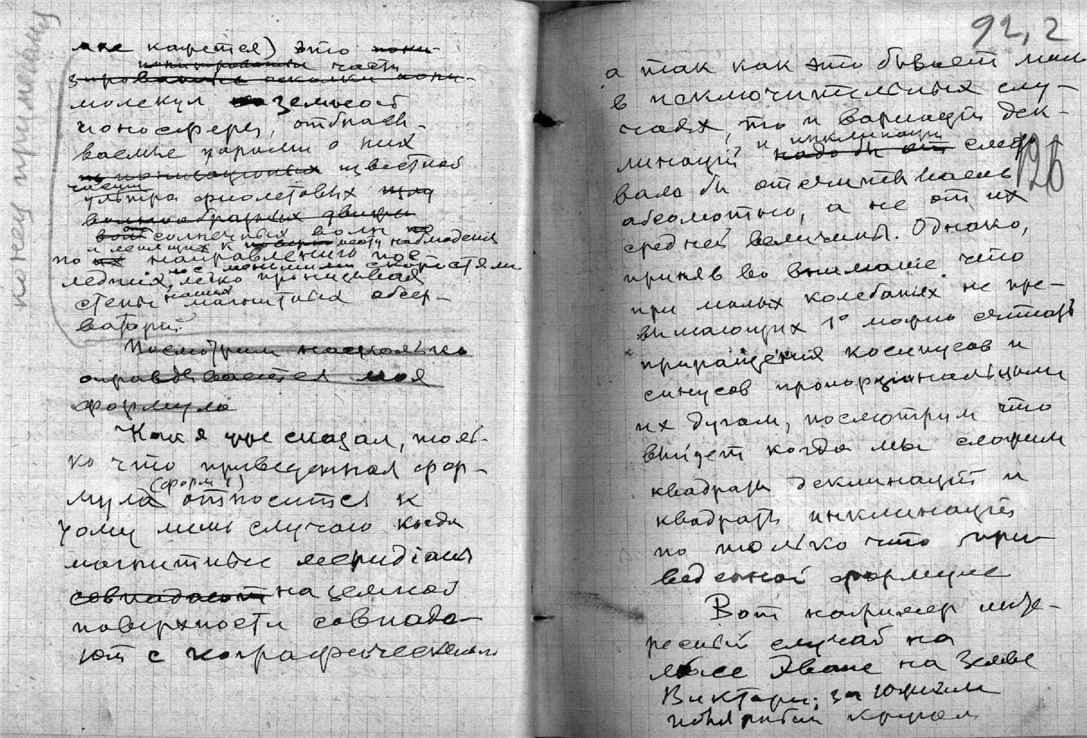 конец примечания
мне кажется) это пони-
ионизированныя части
зировались осколки иони-
молекул земной
ионосферы, отбрасы-
ваемые ударами о них
известной
части
ультра фиолетовых
волнообразных
солнечных волн
и летящих к месту наблюдения
по направлению пос-
ледних, но с меньшими скоростями
легко пронизывая
стены наших магнитных обсер-
ваторий.
Посмотрим насколько
оправдывается моя
формула
Как я уже сказал, толь-
ко что приведенная фор-
мула (форм 1) относится к
тому лишь случаю когда
магнитные меридіаны
совпадают на земной
поверхности совпада-
ют с географическими
92, 2
126
а так как это бывает лишь
в исключительных слу-
чаях, то и вариаціи дек-
линаціи и инклинаціи
надо бы следо
вало бы отсчитывать
абсолютно, а не от их
средней величины. Однако,
приняв во вниманіе что
при малых колебаніях не пре-
вышающих 1° можно считать
приращения косинусов и
синусов пропорціональными
их дугам, посмотрим что
выйдет когда мы сложим
квадраты деклинацій и
квадраты инклинацій
по только что при-
веденной формуле
Вот например инте-
ресный случай на
мысе Эванс на Земле
Виктории, за Южным
полярным кругом